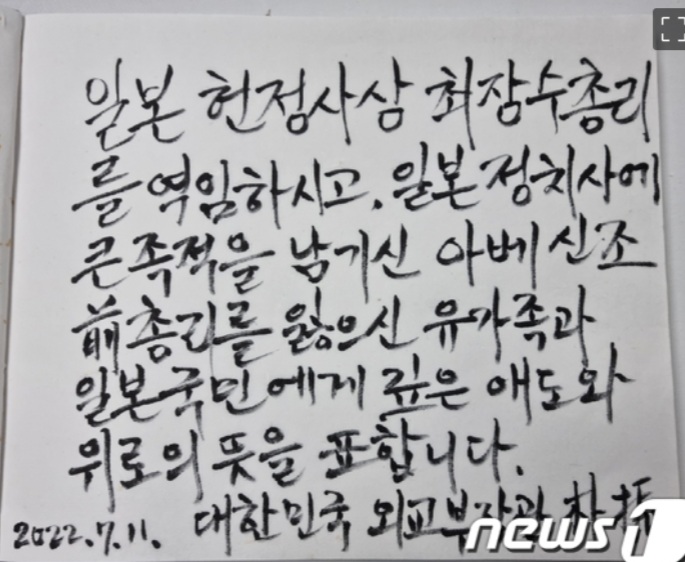 일본 헌정사상 최장수총리
를 역임하시고, 일본 정치사에
큰 족적을 남기신 아베 신조
前총리를 잃으신 유가족과
일본국민에게 깊은 애도와
위로의 뜻을 표합니다.
2022.7.11. 대한민국 외교부장관 朴
news1